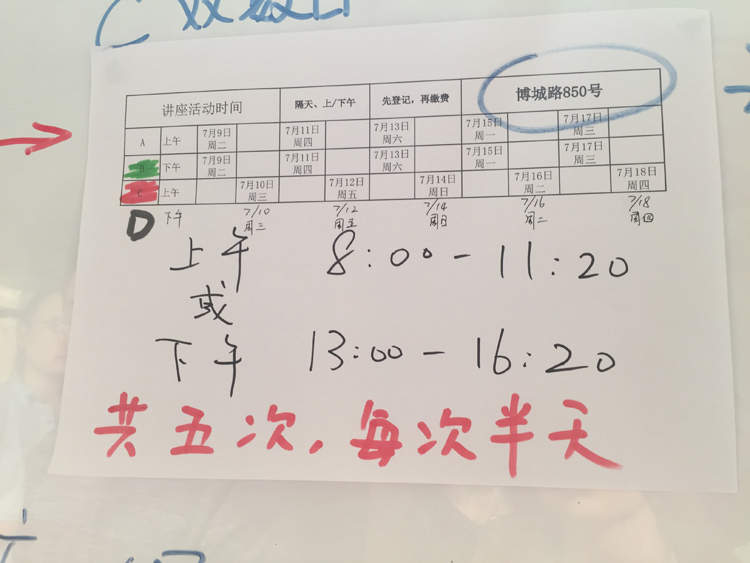 讲座活动时间 隔天、上/下午 先登记,再缴费 博城路850号
A 上午 7月9日 周二 7月11日 周四 7月13日 周六 7月15日 周一 7月17日 周三
下午 7月9日 周二 7月11日 周四 7月13日 周六 7月15日 周一 7月17日 周三
上午 7月10日 周三 7月12日 周五 7月14日 周日 7月16日 周二 7月18日 周四
D 下午 7/10 周三 7/12 周五 7/14 周日 7/16 周二 7/18 周四
上午 8:00-11:20
或
下午 13:00-16:20
共五次,每次半天